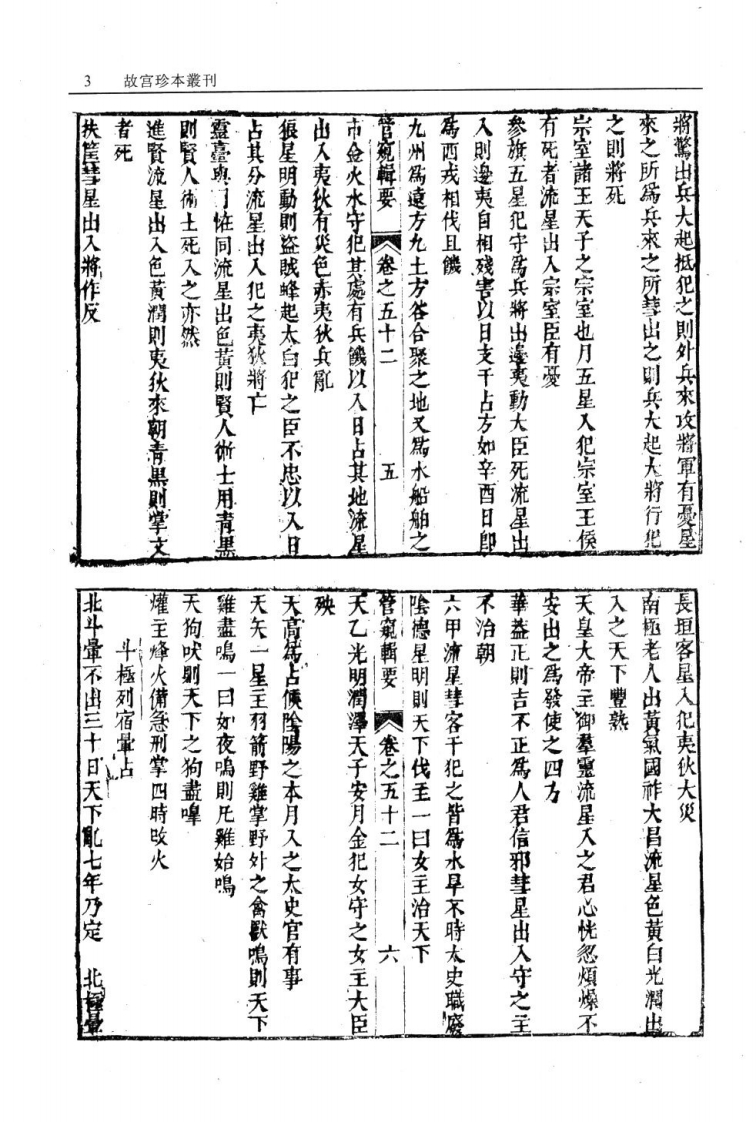 3 故宫珍本叢刊
將驚出兵大起抵犯之則外兵來攻將軍有憂星
來之所爲兵來之所彗出之則兵大起大將行犯
之則將死
宗室諸王天子之宗室也月五星入犯宗室王侯
有死者流星出入宗室臣有憂
參旗五星犯守爲兵將出邊夷動大臣死流星出
入則邊夷自相殘害以日支干占方如辛酉日卽
爲西戎相伐且饑
九州爲遠方九土方峉合聚之地又爲水船舶之
管窺輯要 卷之五十二 五
市金火水守犯其處有兵饑以入日占其地流星
出入夷狄有災色赤夷狄兵亂
狼星明動則盜賊蜂起太白犯之臣不忠以入日
占其分流星出入犯之夷狄將亡
靈臺與司恠同流星出色黃則賢人術士用青黑
則賢人術士死入之亦然
進賢流星出入色黃潤則夷狄來朝青黑則掌文
者死
扶筐彗星出入將作反
長垣客星入犯夷狄大災
南極老人出黃氣國祚大昌流星色黃白光潤出
入之天下豐熟
天皇大帝主御羣靈流星入之君心恍惚煩燥不
安出之爲發使之四方
華葢正則吉不正爲人君信邪彗星出入守之主
不治朝
六甲流星彗客干犯之皆爲水旱不時太史職廢
陰德星明則天下伐至一曰女主治天下
管窺輯要 卷之五十二 六
天乙光明潤澤天子安月金犯女守之女主大臣
殃
天高爲占候陰陽之本月入之太史官有事
天矢一星主羽箭野雞掌野外之禽獸鳴則天下
雞盡鳴一曰如夜鳴則凡雞始鳴
天狗吠則天下之狗盡嘷
爟主烽火備急刑掌四時改火
斗極列宿暈占
北斗暈不出三十日天下亂七年乃定 北極暈